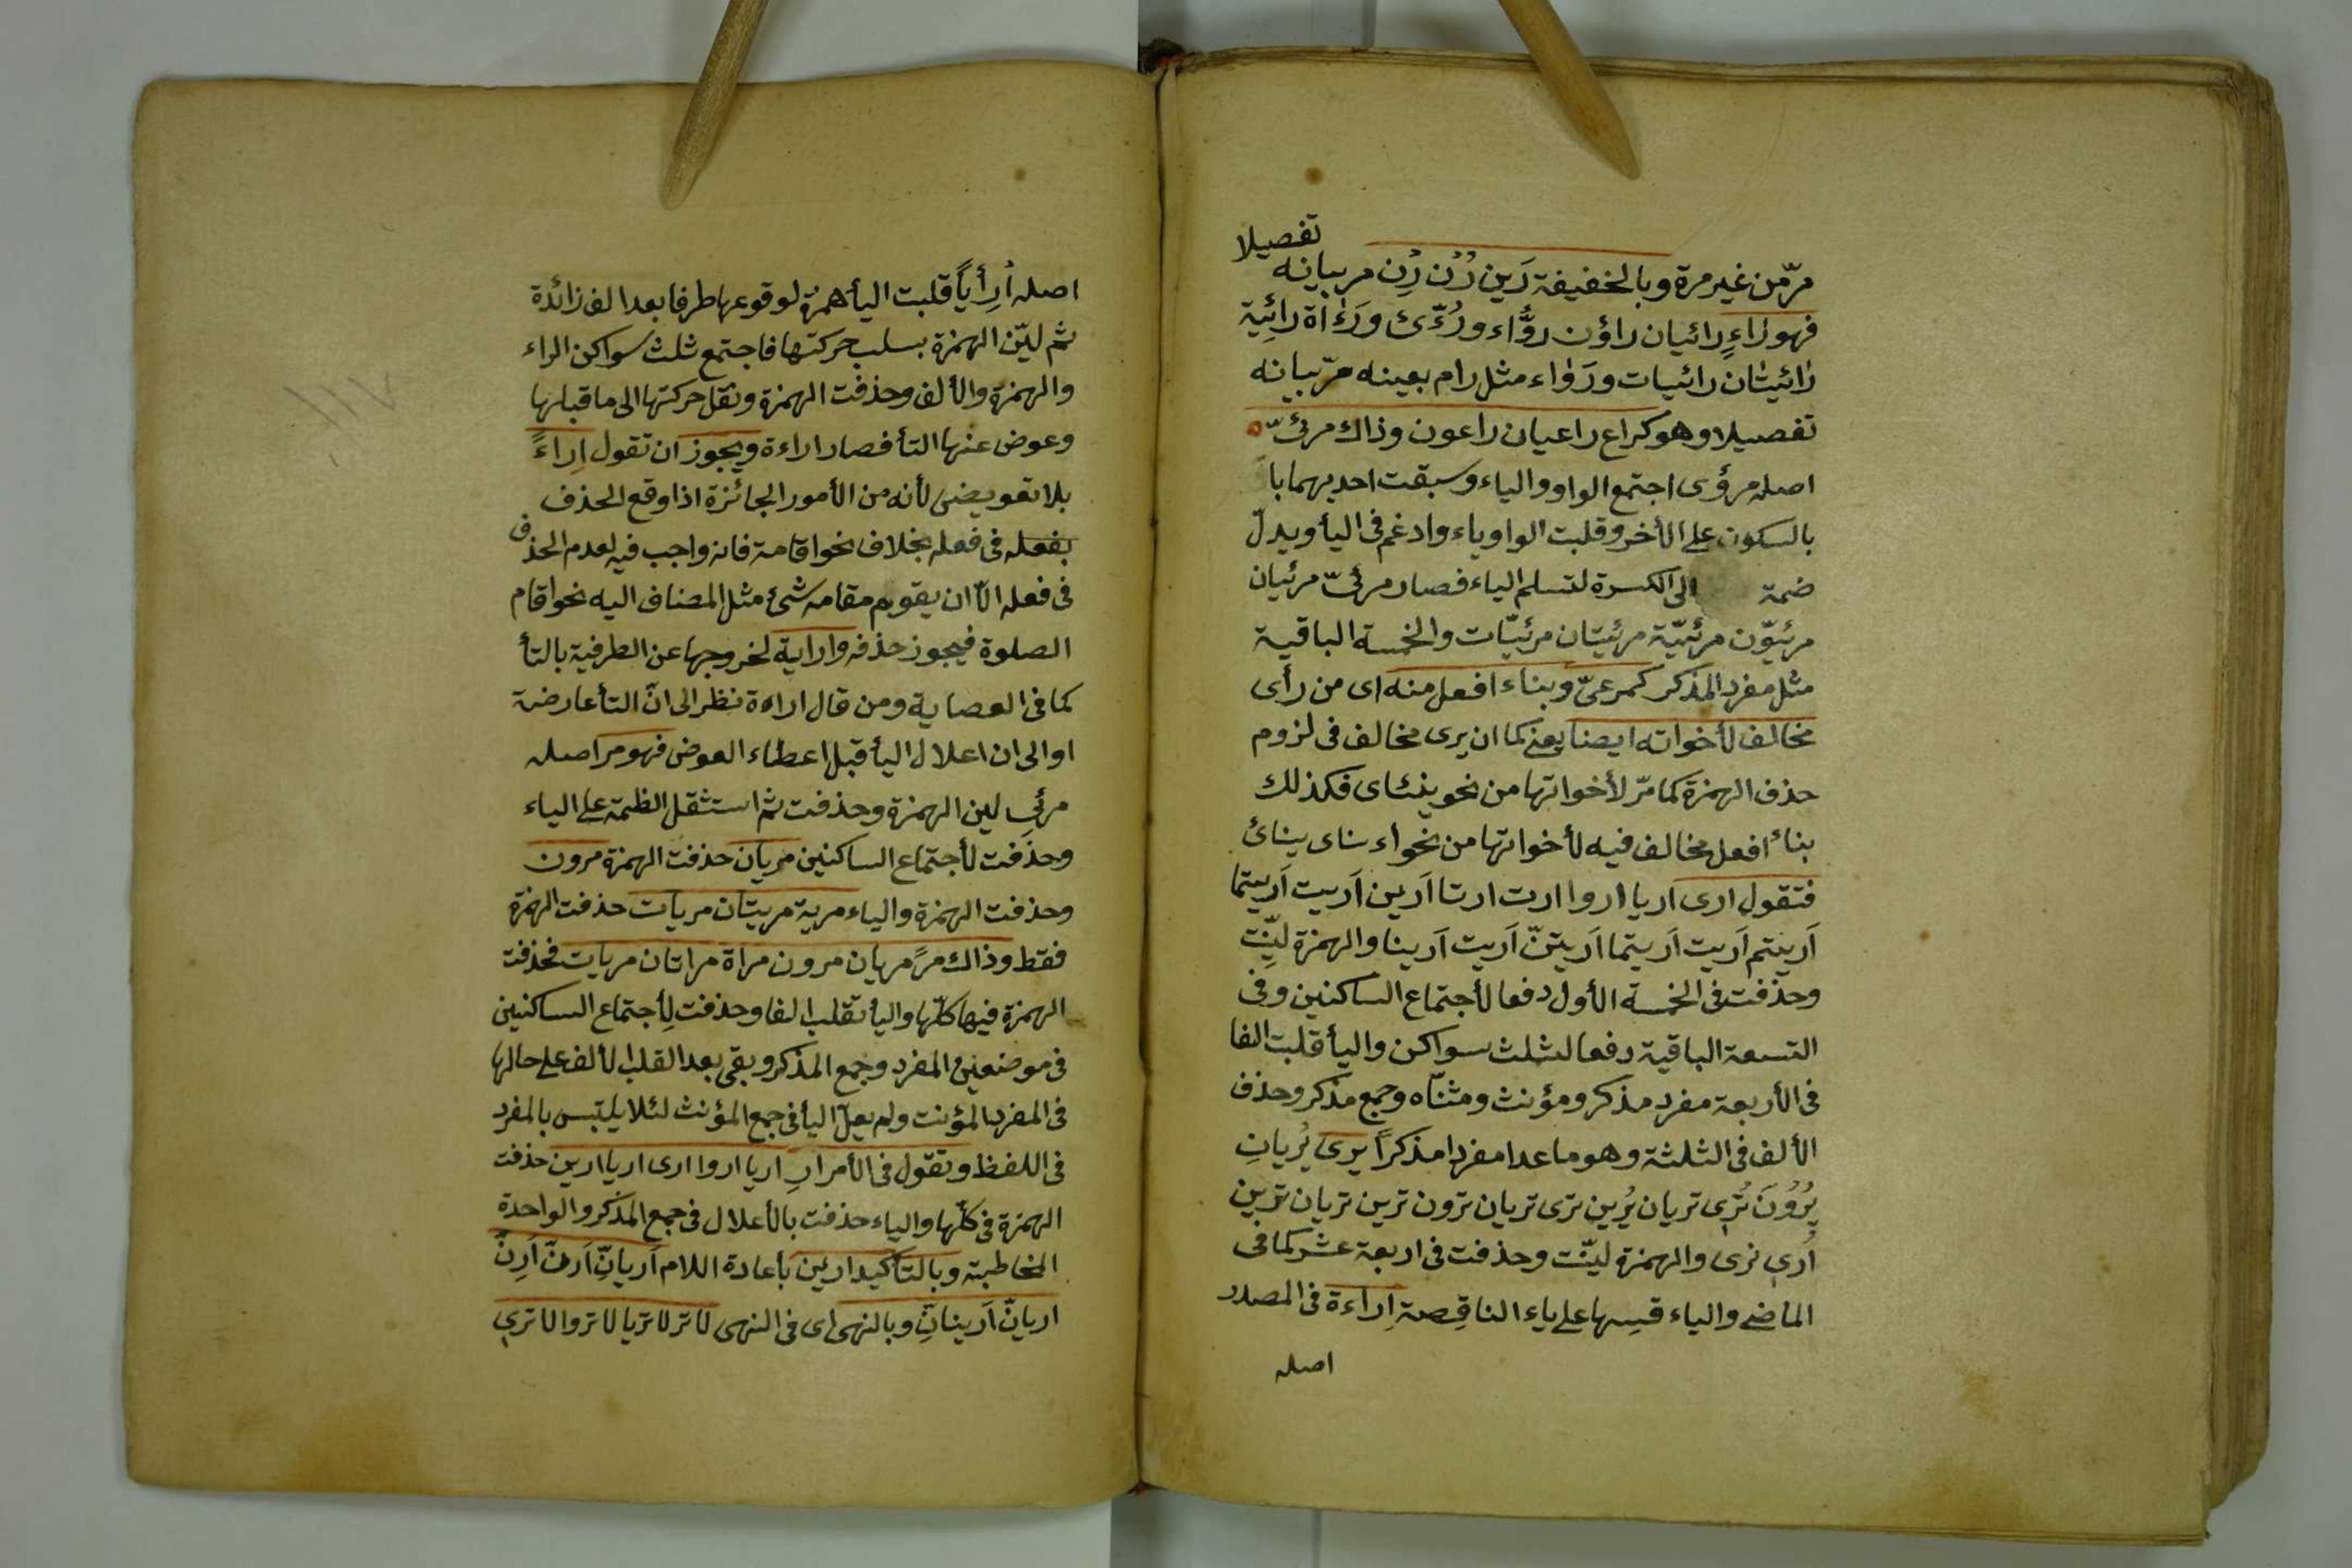 تفصيلا
مرّ من غير مرة وبالخفيفة رَين رُن رِن مر بيانه
فهو راءٍ رائيان راؤن رؤّاء ورُءّى ورُءاة رائِية
رائيتان رائيات ورَوٰاء مثل رام بعينه مرّ بيانه
تفصيلا وهو كراع راعيان راعون وذاك مرئىّ
اصله مرؤى اجتمع الواو والياء وسبقت احديهما با
بالسكون على الأخر وقلبت الواو ياء وادغم فى اليأ ويدلّ
ضمة الى الكسرة لتسلم الياء فصار مرئىّ مرئيان
مرئيوّن مرئيّة مرئيتان مرئيّات والخمسة الباقية
مثل مفرد المذكر كمرعىّ وبناء افعل منه اى من رأى
مخالف لأخواته ايضا يعنے كما ان يرى مخالف فى لزوم
حذف الهمزة كما مرّ لأخواتها من نحو ينئاى فكذلك
بناء افعل مخالف فيه لأخواتها من نحو اء ناى ينائ
فتقول ارى اريا اروا ارت ارتا اَرين اَريت اَريتما
اَريتم اَريت اَريتما اَريتنّ اَريت اَرينا والهمزة ليّنت
وحذفت فى الخمسة الأول دفعا لأجتماع الساكنين وفى
التسعة الباقية دفعا لثلث سواكن واليأ قلبت الفا
فى الأربعة مفرد مذكر ومؤنث ومثنّاه وجمع مذكر وحذف
الألف فى الثلثة وهو ما عدا مفردا مذكراً يرى يُريانِ
يُرُوُنَ تُرى تريان يُرين ترى تريان ترون ترين تريان ترين
اُرى نرى والهمزة ليّنت وحذفت فى اربعة عشر كما فى
الماضے والياء قسِها على ياء الناقِصة اِراءة فى المصدر
اصله
اصله اُرِأياً قلبت اليأ همزة لوقوعها طرفا بعد الف زائدة
ثم ليّن الهمزة بسلب حركتها فاجتمع ثلث سواكن الراء
والهمزة والألف وحذفت الهمزة ونقل حركتها الى ما قبلها
وعوض عنها التأ فصار اراءة ويجوز ان تقول اِراءً
بلا تعويض لأنه من الأمور الجائزة اذا وقع الحذف
بفعله فى فعله بخلاف نحو اقامة فانه واجب فيه لعدم الحذف
فى فعله الّا ان يقوم مقامه شئ مثل المضاف اليه نحو اقام
الصلوة فيجوز حذفه واراية لخروجها عن الطرفية بالتأ
كما فى العصاية ومن قال اراءة نظر الى انّ التأ عارضة
او الى ان اعلال اليأ قبل اعطاء العوض فهو مر اصله
مرئى لين الهمزة وحذفت ثم استثقل الظمة على الياء
وحذفت لأجتماع الساكنين مريان حذفت الهمزة مرون
وحذفت الهمزة والياء مرية مريتان مريات حذفت الهمزة
فقط وذاك مرً مريان مرون مراة مراتان مريات فحذفت
الهمزة فيها كلّها واليأ تقلب الفا وحذفت لِأجتماع الساكنين
فى موضعين المفرد وجمع المذكر وبقى بعد القلب الألف على حالها
فى المفرد المؤنث ولم يعلّ اليأ فى جمع المؤنث لئلا يلتبس بالمفرد
فى اللفظ وتقول فى الأمر ارِ اريا اروا ارى اريا ارين حذفت
الهمزة فى كلّها والياء حذفت بالأعلال فى جمع المذكر والواحدة
المخاطبة وبالتأكيد ارين بأعادة اللام اَريانّ اَرنّ اَرِنّ
اريانّ اَرينانّ وبالنهى اى فى النهى لا تر لا تريا لا تروا لا ترى